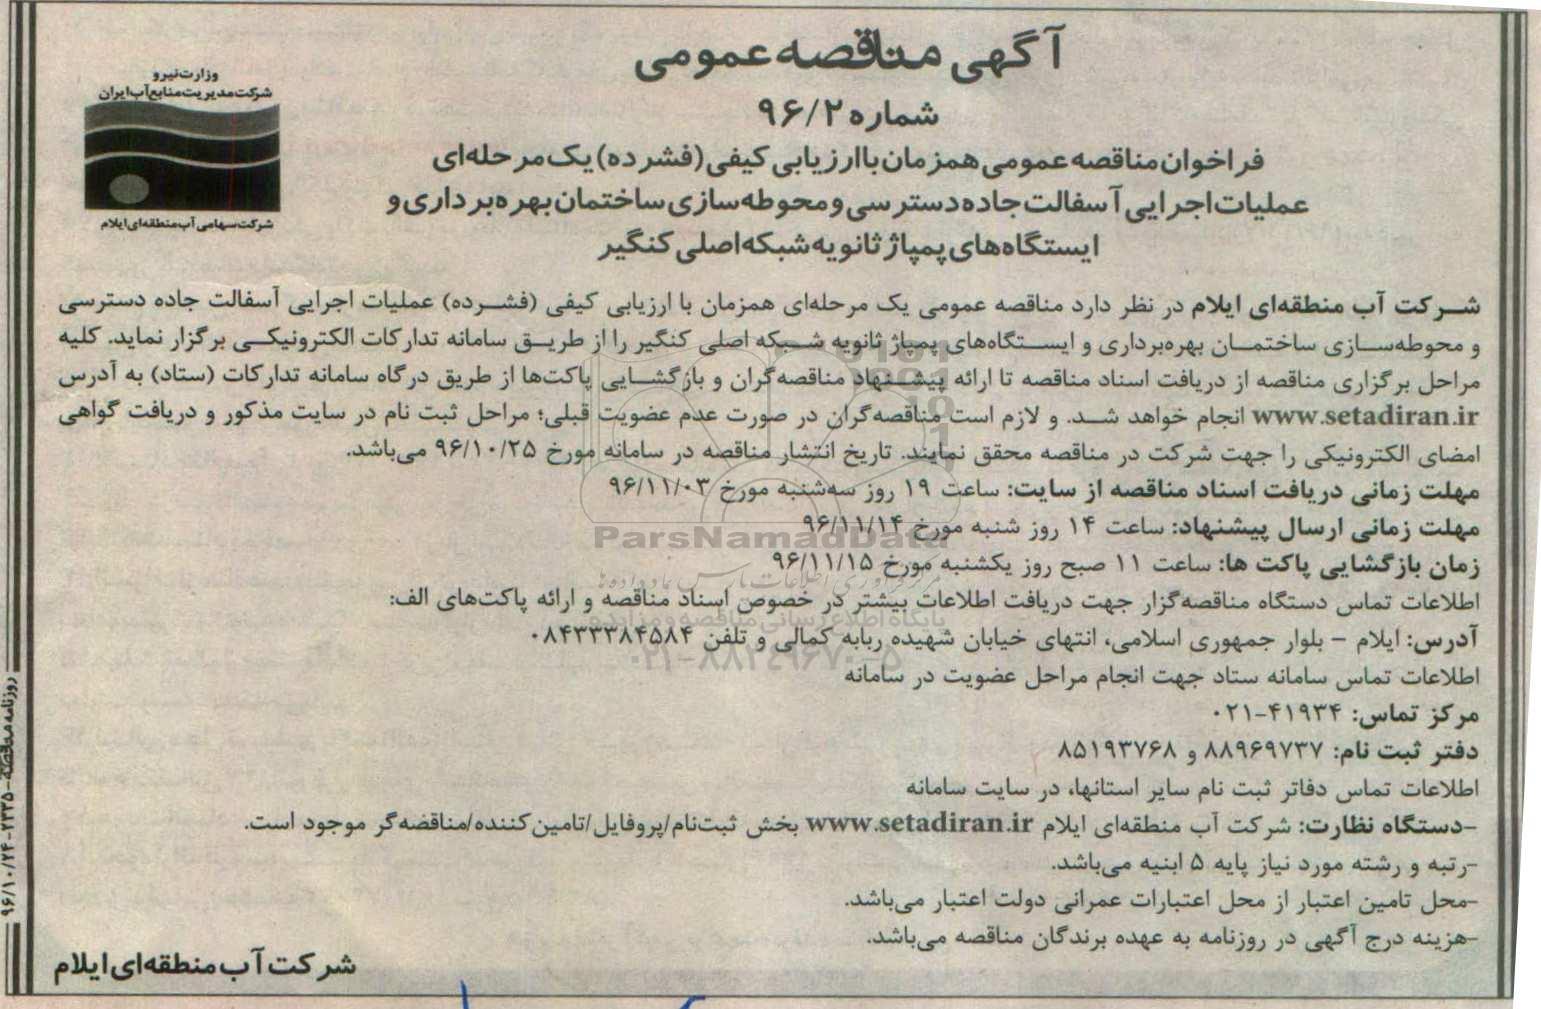 آگهی مناقصه عمومی
شماره ۹۶/۲
فراخوان مناقصه عمومی همزمان با ارزیابی کیفی (فشرده) یک مرحله‌ای
عملیات اجرایی آسفالت جاده دسترسی و محوطه سازی ساختمان بهره برداری و
ایستگاه‌های پمپاژ ثانویه شبکه اصلی کنگیر
وزارت نیرو
شرکت مدیریت منابع آب ایران
شرکت سهامی آب منطقه‌ای ایلام
شرکت آب منطقه‌ای ایلام در نظر دارد مناقصه عمومی یک مرحله‌ای همزمان با ارزیابی کیفی (فشرده) عملیات اجرایی آسفالت جاده دسترسی
و محوطه‌سازی ساختمان بهره‌برداری و ایستگاه‌های پمپاژ ثانویه شبکه اصلی کنگیر را از طریق سامانه تدارکات الکترونیکی برگزار نماید. کلیه
مراحل برگزاری مناقصه از دریافت اسناد مناقصه تا ارائه پیشنهاد مناقصه‌گران و بازگشایی پاکت‌ها از طریق درگاه سامانه تدارکات (ستاد) به آدرس
www.setadiran.ir انجام خواهد شد. و لازم است مناقصه‌گران در صورت عدم عضویت قبلی؛ مراحل ثبت نام در سایت مذکور و دریافت گواهی
امضای الکترونیکی را جهت شرکت در مناقصه محقق نمایند. تاریخ انتشار مناقصه در سامانه مورخ ۹۶/۱۰/۲۵ می‌باشد.
مهلت زمانی دریافت اسناد مناقصه از سایت: ساعت ۱۹ روز سه‌شنبه مورخ ۹۶/۱۱/۰۳
مهلت زمانی ارسال پیشنهاد: ساعت ۱۴ روز شنبه مورخ ۹۶/۱۱/۱۴
زمان بازگشایی پاکت ها: ساعت ۱۱ صبح روز یکشنبه مورخ ۹۶/۱۱/۱۵
اطلاعات تماس دستگاه مناقصه‌گزار جهت دریافت اطلاعات بیشتر در خصوص اسناد مناقصه و ارائه پاکت‌های الف:
آدرس: ایلام - بلوار جمهوری اسلامی، انتهای خیابان شهیده ربابه کمالی و تلفن ۰۸۴۳۳۳۸۴۵۸۴
اطلاعات تماس سامانه ستاد جهت انجام مراحل عضویت در سامانه
مرکز تماس: ۴۱۹۳۴-۰۲۱
دفتر ثبت نام: ۸۸۹۶۹۷۳۷ و ۸۵۱۹۳۷۶۸
اطلاعات تماس دفاتر ثبت نام سایر استانها، در سایت سامانه
-دستگاه نظارت: شرکت آب منطقه‌ای ایلام www.setadiran.ir بخش ثبت‌نام/پروفایل/تامین‌کننده/مناقضه‌گر موجود است.
-رتبه و رشته مورد نیاز پایه ۵ ابنیه می‌باشد.
-محل تامین اعتبار از محل اعتبارات عمرانی دولت اعتبار می‌باشد.
-هزینه درج آگهی در روزنامه به عهده برندگان مناقصه می‌باشد.
شرکت آب منطقه‌ای ایلام
روزنامه مناقصه-۲۳۳۵-۹۶/۱۰/۲۴
ParsNamadData
مرکز فرآوری اطلاعات پارس نماد داده‌ها
پایگاه اطلاع رسانی مناقصه و مزایده
۰۲۱-۸۸۳۴۹۶۷۰-۵